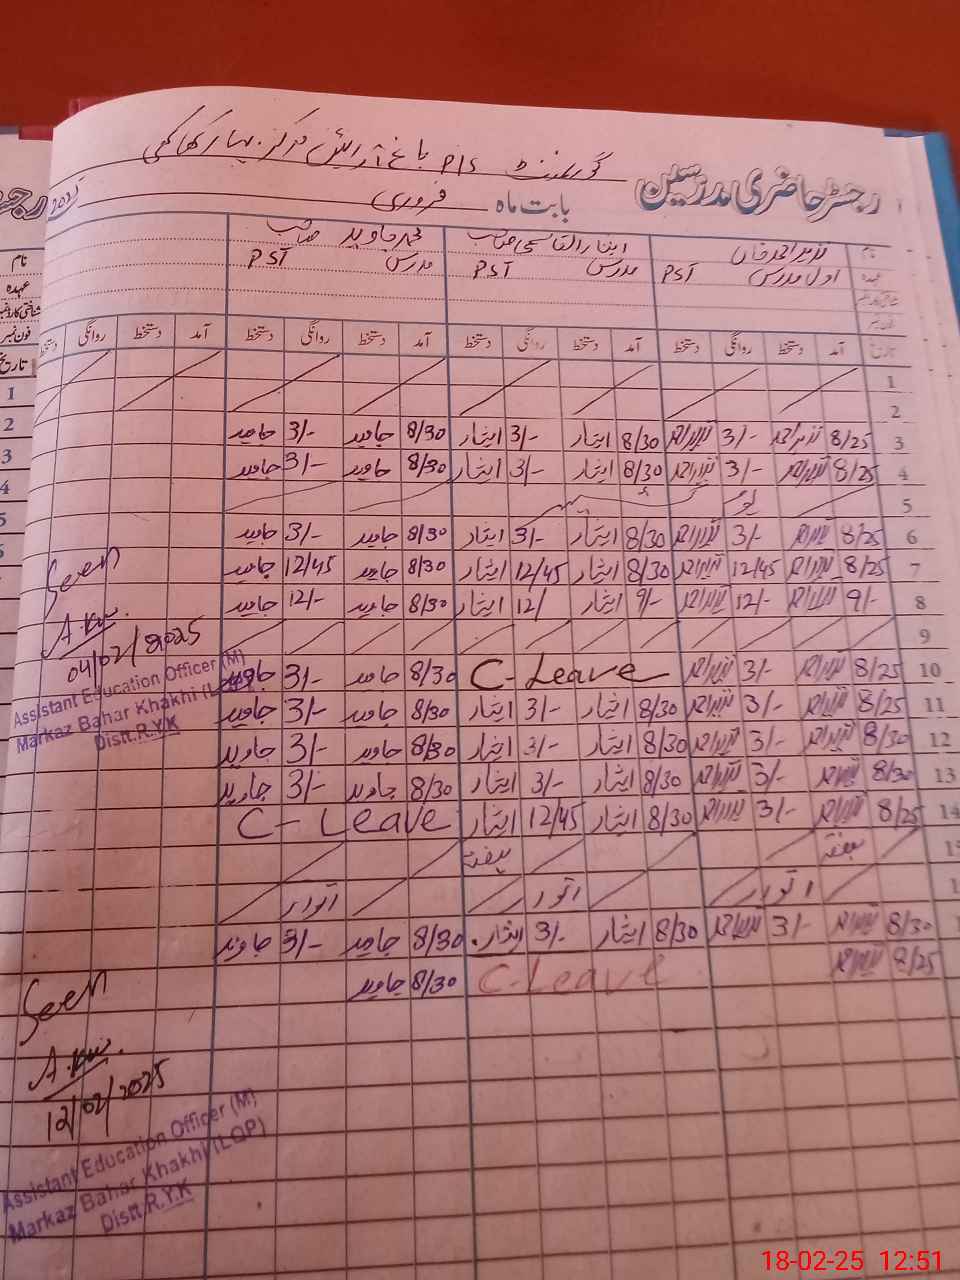 گورنمنٹ P/S باغ آرائیں مرکز بہار کھاکھی
رجسٹر حاضری مدرسین بابت ماہ فروری 2025
نام نذیر احمد خان ایثار القاسمی صاحب محمد جاوید صاحب
عہدہ اول مدرس PST مدرس PST مدرس PST
شناختی کارڈ نمبر
فون نمبر
تاریخ آمد دستخط روانگی دستخط آمد دستخط روانگی دستخط آمد دستخط روانگی دستخط آمد دستخط روانگی دستخط
1
2
3 8/25 نذیر احمد 3/- نذیر احمد 8/30 ایثار 3/- ایثار 8/30 جاوید 3/- جاوید
4 8/25 نذیر احمد 3/- نذیر احمد 8/30 ایثار 3/- ایثار 8/30 جاوید 3/- جاوید
5
6 8/25 نذیر احمد 3/- نذیر احمد 8/30 ایثار 3/- ایثار 8/30 جاوید 3/- جاوید
7 8/25 نذیر احمد 12/45 نذیر احمد 8/30 ایثار 12/45 ایثار 8/30 جاوید 12/45 جاوید
8 9/- نذیر احمد 12/- نذیر احمد 9/- ایثار 12/ ایثار 8/30 جاوید 12/- جاوید
9
10 8/25 نذیر احمد 3/- نذیر احمد C-Leave 8/30 جاوید 3/- جاوید
11 8/25 نذیر احمد 3/- نذیر احمد 8/30 ایثار 3/- ایثار 8/30 جاوید 3/- جاوید
12 8/30 نذیر احمد 3/- نذیر احمد 8/30 ایثار 3/- ایثار 8/30 جاوید 3/- جاوید
13 8/30 نذیر احمد 3/- نذیر احمد 8/30 ایثار 3/- ایثار 8/30 جاوید 3/- جاوید
14 8/25 نذیر احمد 3/- نذیر احمد 8/30 ایثار 12/45 ایثار C-Leave
ہفتہ ہفتہ
اتوار اتوار اتوار
8/30 نذیر احمد 3/- نذیر احمد 8/30 ایثار 3/- ایثار 8/30 جاوید 3/- جاوید
8/25 نذیر احمد C-Leave 8/30 جاوید
Seen
04/02/2025
Assistant Education Officer (M)
Markaz Bahar Khakhi (LQP)
Distt.R.Y.K
Seen
12/02/2025
Assistant Education Officer (M)
Markaz Bahar Khakhi (LQP)
Distt.R.Y.K
رجسٹر
نام
عہدہ
شناختی کارڈ نمبر
فون نمبر
تاریخ
1
2
3
4
5
18-02-25 12:51